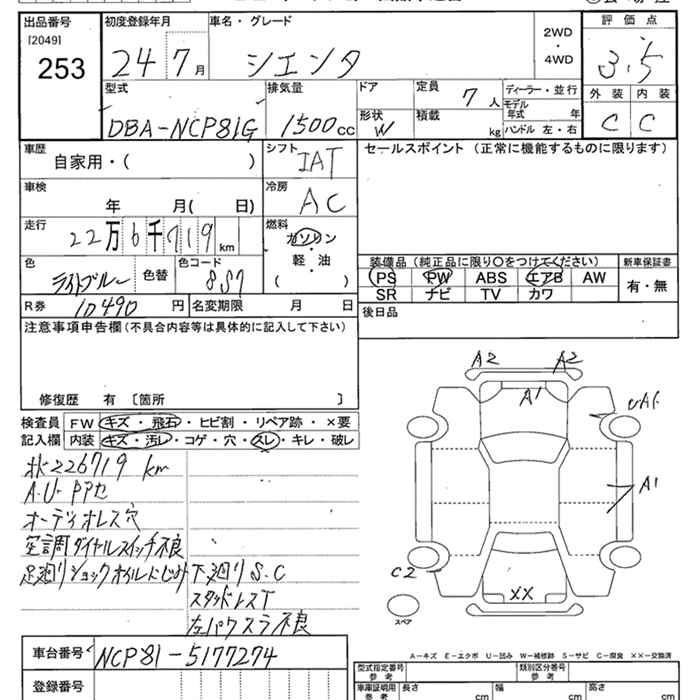 出品番号 初度登録年月 車名・グレード 評価点
[2049] 2WD
253 24 7月 シエンタ ・ 3.5
4WD
外装 内装
型式 排気量 ドア 定員 7人 ディーラー・並行
モデル年式 年
DBA-NCP81G 1500cc 形状 W 積載 kg ハンドル 左・右 C C
車歴 シフト セールスポイント (正常に機能するものに限ります)
自家用・( ) IAT
車検 冷房
年 月( 日) AC
走行 燃料
22万6千719km ガソリン
・
軽・油
( )
装備品 (純正品に限り○をつけてください) 新車保証書
PS PW ABS エアB AW 有・無
SR ナビ TV カワ
色 色替 色コード
ライトブルー 8S7
R券 10490円 名変期限 月 日 後日品
注意事項申告欄 (不具合内容等は具体的に記入して下さい)
修復歴 有 〔箇所 〕
検査員 FW キズ・飛石・ヒビ割・リペア跡・×要
記入欄 内装 キズ・汚レ・コゲ・穴・スレ・キレ・破レ
226719km
A.U.PPセ
オーディオレス穴
空調ダイヤルスイッチ不良
足廻りショックオイルにじみ 下廻りS.C
スタッドレスT
左パワスラ不良
A2 A2
A1
UA1
A1
C2
XX
スペア
A−キズ E−エクボ U−凹み W−補修跡 S−サビ C−腐食 XX−交換済
車台番号 NCP81-5177274
登録番号
型式指定番号 参考 類別区分番号 参考
車庫証明用 参考 長さ cm 幅 cm 高さ cm